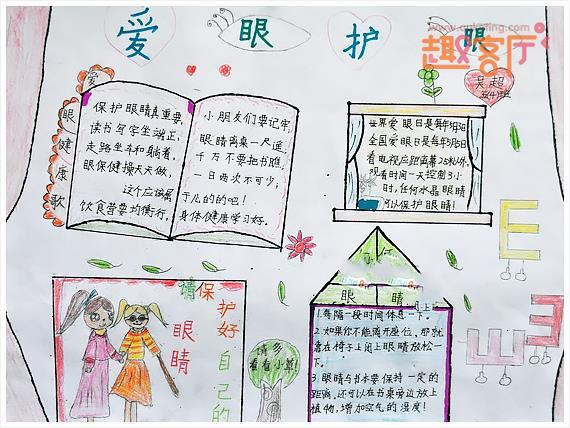 爱 眼 护 眼
趣客厅
吴超
爱
眼
健
康
歌
保护眼睛真重要,
读书写字坐端正,
走路坐车和躺着,
眼保健操天天做,
这个应该属
饮食营要均衡行,
小朋友们要记牢,
眼睛离桌一尺遥,
千万不要把书瞧,
一日两次不可少,
于儿的的吧!
身体健康学习好。
看电视应距离
观看时间一天控制3小
时,任何水晶眼睛
可以保护眼睛!
E
E
山
请保护好
眼睛
自己的
请多
看看小草!
眼 睛
1.每隔一段时间休息一下。
2.如果你不能离开座位,那就
靠在椅子上闭上眼睛放松一
下。
3.眼睛与书本要保持一定的
距离,还可以在书桌旁边放上
植物,增加空气的湿度!